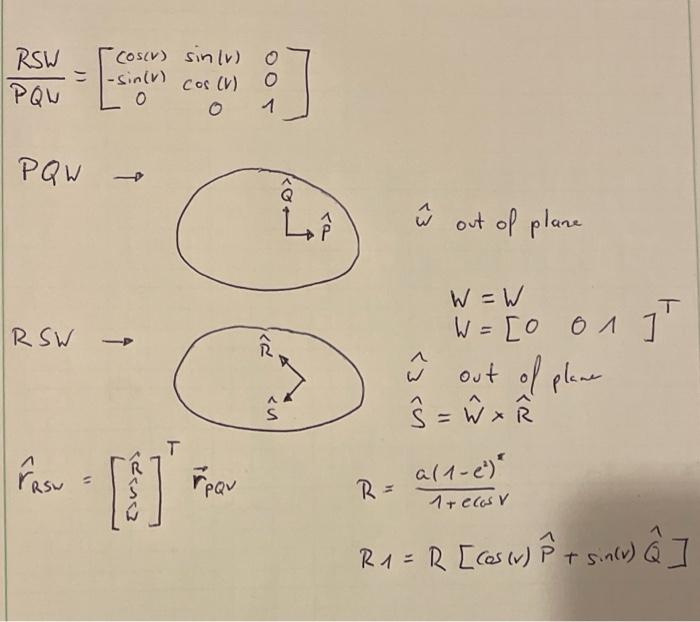 RSW/PQW = [cos(ν) sin(ν) 0
-sin(ν) cos(ν) 0
0 0 1]
PQW →
Q̂
P̂
ŵ out of plane
W = W
W = [0 0 1]ᵀ
RSW →
R̂
Ŝ
ŵ out of plane
Ŝ = Ŵ × R̂
r̂_RSW = [R̂ Ŝ Ŵ]ᵀ r⃗_PQW
R = a(1-e²) / 1+e cos ν
R1 = R [cos(ν) P̂ + sin(ν) Q̂]